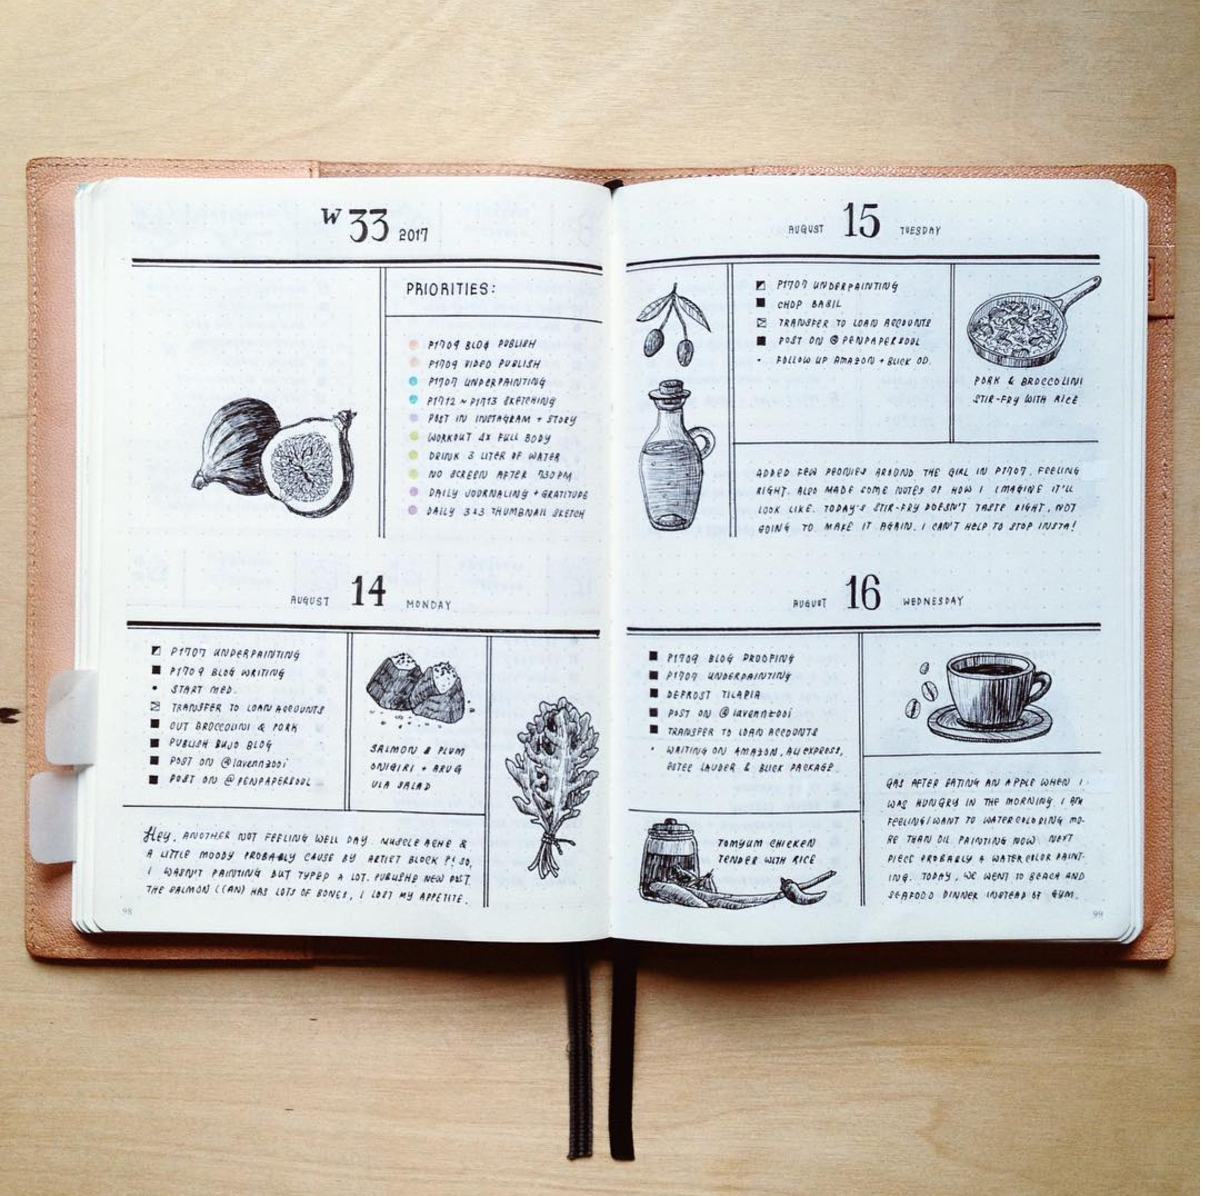 W 33 2017
PRIORITIES:
P1709 BLOG PUBLISH
P1709 VIDEO PUBLISH
P1707 UNDERPAINTING
P1712 ~ P1713 SKETCHING
POST IN INSTAGRAM + STORY
WORKOUT 4X FULL BODY
DRINK 3 LITER OF WATER
NO SCREEN AFTER 730PM
DAILY JOURNALING + GRATITUDE
DAILY 3x3 THUMBNAIL SKETCH
AUGUST 14 MONDAY
P1707 UNDERPAINTING
P1709 BLOG WRITING
START MED.
TRANSFER TO LOAN ACCOUNTS
OUT BROCCOLINI & PORK
PUBLISH BUJO BLOG
POST ON @lavenn2001
POST ON @PENPAPERSOUL
SALMON & PLUM
ONIGIRI + ARUG
ULA SALAD
Hey, ANOTHER NOT FEELING WELL DAY. MUSCLE ACHE &
A LITTLE MOODY PROBABLY CAUSE BY ARTIST BLOCK?! SO,
I WASN'T PAINTING BUT TYPED A LOT. PUBLISHED NEW POST.
THE SALMON (CAN) HAS LOTS OF BONES, I LOST MY APPETITE.
98
AUGUST 15 TUESDAY
P1707 UNDERPAINTING
CHOP BASIL
TRANSFER TO LOAN ACCOUNTS
POST ON @PENPAPERSOUL
FOLLOW UP AMAZON + BLICK OD.
PORK & BROCCOLINI
STIR-FRY WITH RICE
ADDED FEW PEONIES AROUND THE GIRL IN P1707. FEELING
RIGHT. ALSO MADE SOME NOTES OF HOW I IMAGINE IT'LL
LOOK LIKE. TODAY'S STIR-FRY DOESN'T TASTE RIGHT, NOT
GOING TO MAKE IT AGAIN. I CAN'T HELP TO STOP INSTA!
AUGUST 16 WEDNESDAY
P1709 BLOG PROOFING
P1707 UNDERPAINTING
DEFROST TILAPIA
POST ON
TRANSFER TO LOAN ACCOUNTS
WAITING ON AMAZON, ALIEXPRESS,
ESTEE LAUDER & BLICK PACKAGE
TOMYUM CHICKEN
TENDER WITH RICE
GAS AFTER EATING AN APPLE WHEN I
WAS HUNGRY IN THE MORNING. I AM
FEELING/WANT TO WATERCOLORING MO-
RE THAN OIL PAINTING NOW. NEXT
PIECE PROBABLY A WATERCOLOR PAINT-
ING. TODAY, WE WENT TO BEACH AND
SEAFOOD DINNER INSTEAD OF GYM.
99